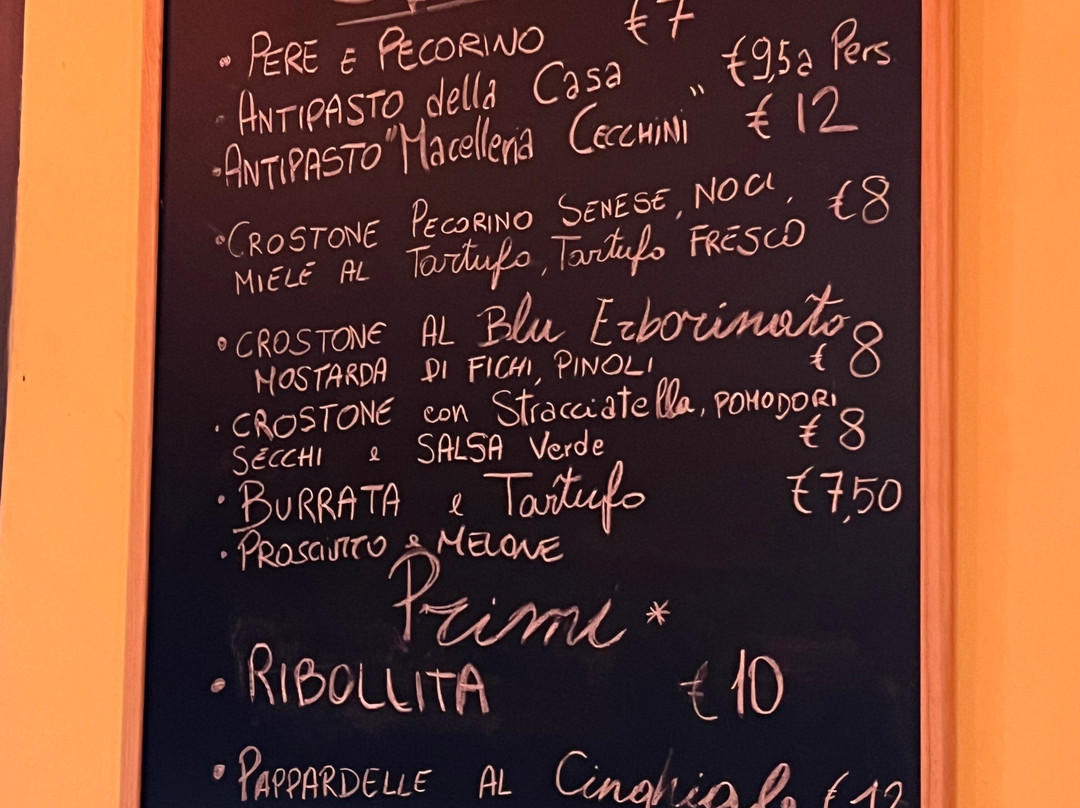 • PERE E PECORINO €7
• ANTIPASTO della Casa €9,5a Pers
• ANTIPASTO "Macelleria CECCHINI" €12
• CROSTONE PECORINO SENESE, NOCI, €8
MIELE AL Tartufo, Tartufo FRESCO
• CROSTONE AL Blu Erborinato
MOSTARDA DI FICHI, PINOLI €8
• CROSTONE con Stracciatella, POMODORI
SECCHI e SALSA Verde €8
• BURRATA e Tartufo €7,50
• PROSCIUTTO e MELONE
Primi *
• RIBOLLITA €10
• PAPPARDELLE AL Cinghiale €12